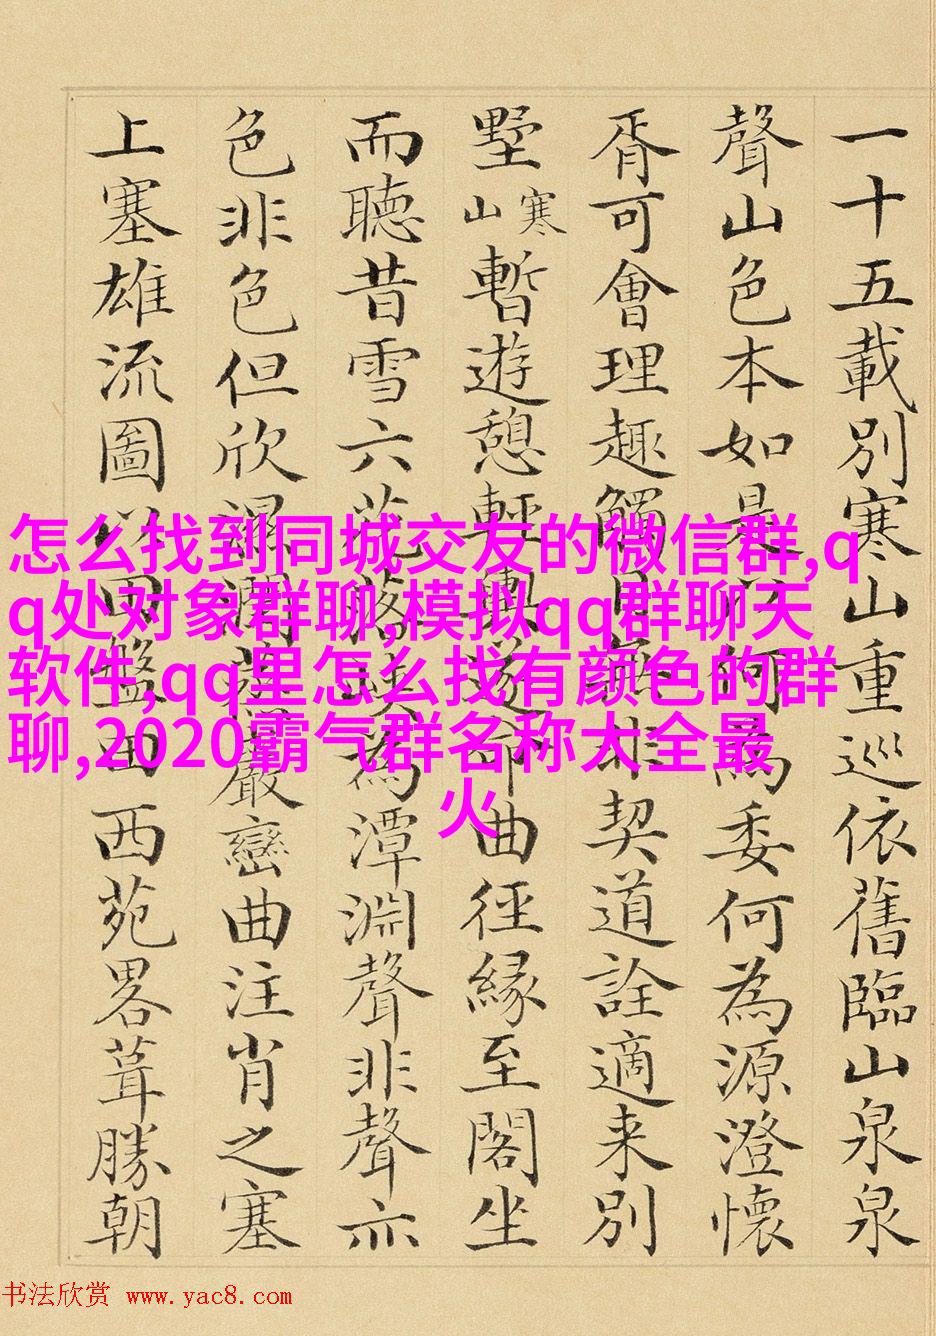 一十五載別寒山重巡依舊臨山泉泉
聲山色本如是何為委何為源澄懷
胥可會理趣觸目無非契道詮適来別
墅寒山暫遊憩輕輿遂印曲徑緣至閣坐
而聽昔雪六花落為潭淵聲非聲亦
色非色但欣巖巒曲注肖之塞
上塞雄流圖以田盤田西苑畧葺勝朝
怎么找到同城交友的微信群,q
q处对象群聊,模拟qq群聊天
软件,qq里怎么找有颜色的群
聊,2020霸气群名称大全最
火
书法欣赏 www.yac8.com